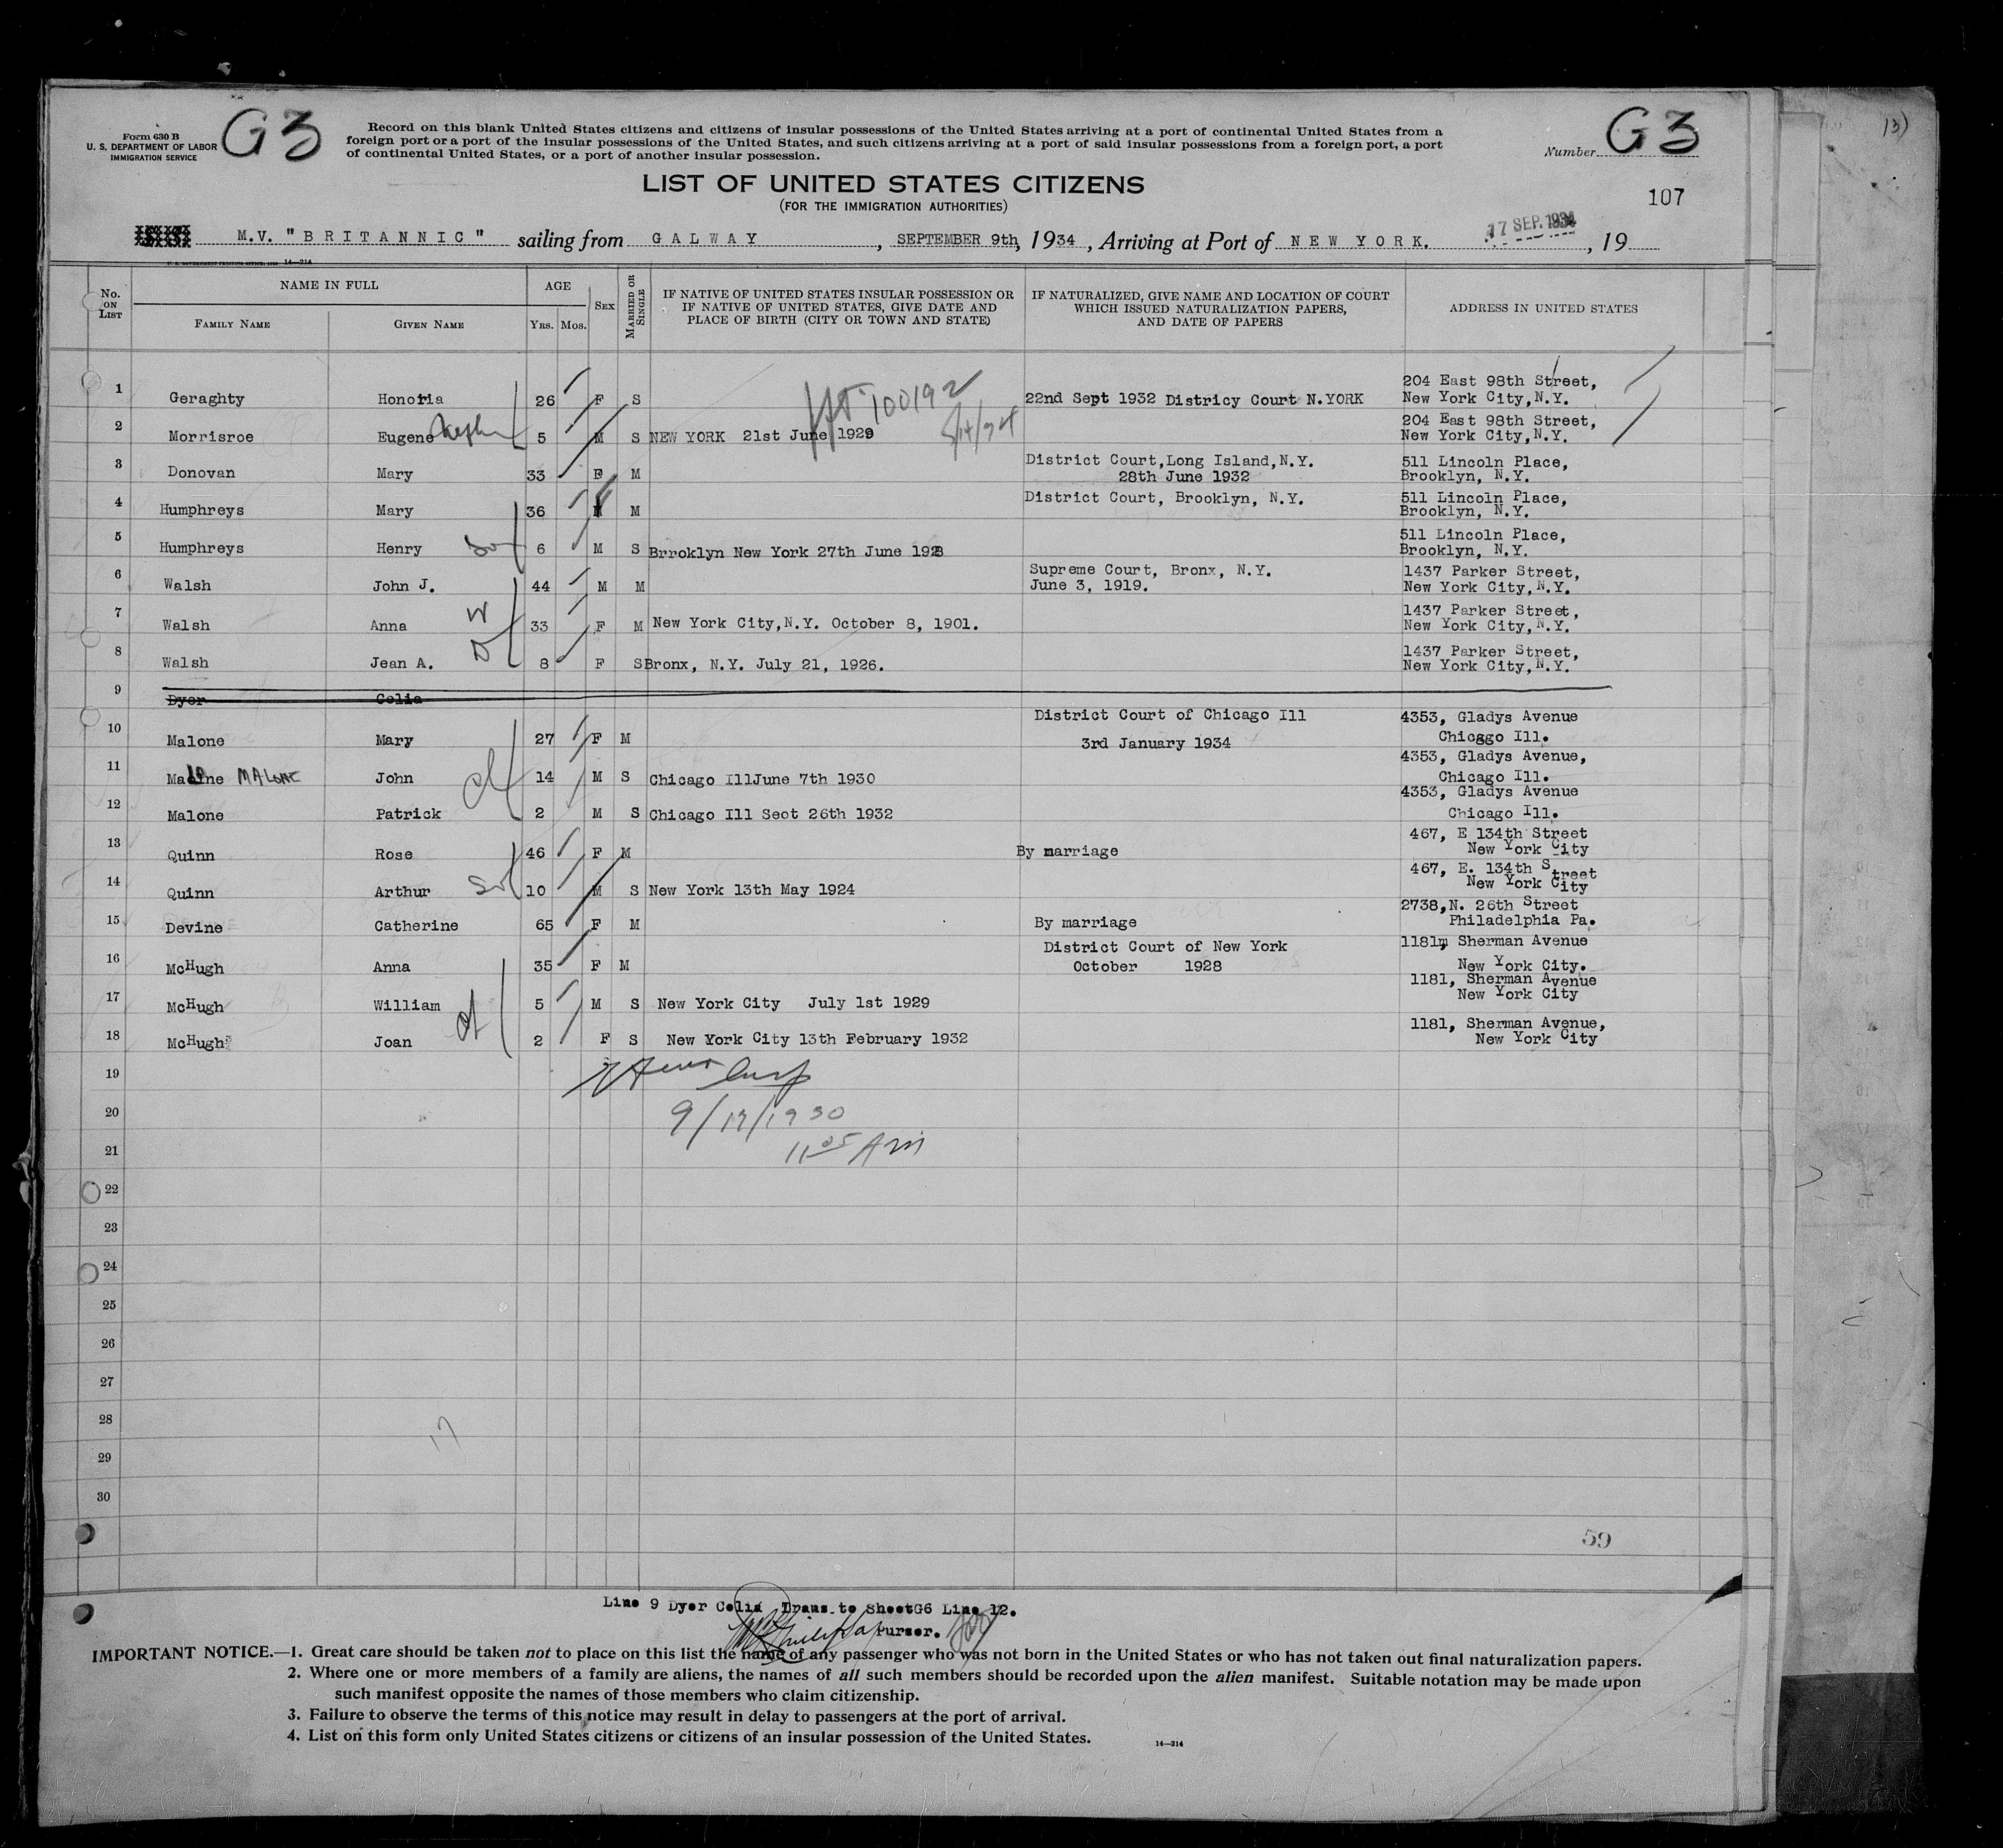 G3
Form 630 B
U. S. DEPARTMENT OF LABOR
IMMIGRATION SERVICE
Record on this blank United States citizens and citizens of insular possessions of the United States arriving at a port of continental United States from a
foreign port or a port of the insular possessions of the United States, and such citizens arriving at a port of said insular possessions from a foreign port, a port
of continental United States, or a port of another insular possession.
Number G3
13)
LIST OF UNITED STATES CITIZENS
(FOR THE IMMIGRATION AUTHORITIES)
107
M.V. "BRITANNIC" sailing from GALWAY, SEPTEMBER 9th, 1934, Arriving at Port of NEW YORK. 17 SEP. 1934, 19
14—214
No. ON LIST
NAME IN FULL
FAMILY NAME GIVEN NAME
AGE
YRS. MOS.
SEX
MARRIED OR SINGLE
IF NATIVE OF UNITED STATES INSULAR POSSESSION OR
IF NATIVE OF UNITED STATES, GIVE DATE AND
PLACE OF BIRTH (CITY OR TOWN AND STATE)
IF NATURALIZED, GIVE NAME AND LOCATION OF COURT
WHICH ISSUED NATURALIZATION PAPERS,
AND DATE OF PAPERS
ADDRESS IN UNITED STATES
100192
204 East 98th Street,
1 Geraghty Honoria 26 F S 22nd Sept 1932 Districy Court N.YORK New York City, N.Y.
204 East 98th Street,
2 Morrisroe Eugene 5 M S NEW YORK 21st June 1929 New York City, N.Y.
District Court, Long Island, N.Y. 511 Lincoln Place,
3 Donovan Mary 33 F M 28th June 1932 Brooklyn, N.Y.
District Court, Brooklyn, N.Y. 511 Lincoln Place,
4 Humphreys Mary 36 F M Brooklyn, N.Y.
511 Lincoln Place,
5 Humphreys Henry 6 M S Brroklyn New York 27th June 1928 Brooklyn, N.Y.
Supreme Court, Bronx, N.Y. 1437 Parker Street,
6 Walsh John J. 44 M M June 3, 1919. New York City, N.Y.
1437 Parker Street,
7 Walsh Anna W 33 F M New York City, N.Y. October 8, 1901. New York City, N.Y.
1437 Parker Street,
8 Walsh Jean A. D 8 F S Bronx, N.Y. July 21, 1926. New York City, N.Y.
9 Dyer Celia
District Court of Chicago Ill 4353, Gladys Avenue
10 Malone Mary 27 F M 3rd January 1934 Chicago Ill.
4353, Gladys Avenue,
11 MALONE John 14 M S Chicago Ill June 7th 1930 Chicago Ill.
4353, Gladys Avenue
12 Malone Patrick 2 M S Chicago Ill Seot 26th 1932 Chicago Ill.
467, E 134th Street
13 Quinn Rose 46 F M By marriage New York City
467, E. 134th Street
14 Quinn Arthur 10 M S New York 13th May 1924 New York City
2738, N. 26th Street
15 Devine Catherine 65 F M By marriage Philadelphia Pa.
District Court of New York 1181, Sherman Avenue
16 McHugh Anna 35 F M October 1928 New York City.
1181, Sherman Avenue
17 McHugh William 5 M S New York City July 1st 1929 New York City
1181, Sherman Avenue,
18 McHugh Joan 2 F S New York City 13th February 1932 New York City
19
20
21
11 05 AM
22
23
24
25
26
27
28
29
30
17
59
Line 9 Dyer Celia Trans.to SheetG6 Line 12.
Purser.
IMPORTANT NOTICE.—1. Great care should be taken not to place on this list the name of any passenger who was not born in the United States or who has not taken out final naturalization papers.
2. Where one or more members of a family are aliens, the names of all such members should be recorded upon the alien manifest. Suitable notation may be made upon
such manifest opposite the names of those members who claim citizenship.
3. Failure to observe the terms of this notice may result in delay to passengers at the port of arrival.
4. List on this form only United States citizens or citizens of an insular possession of the United States.
14—214